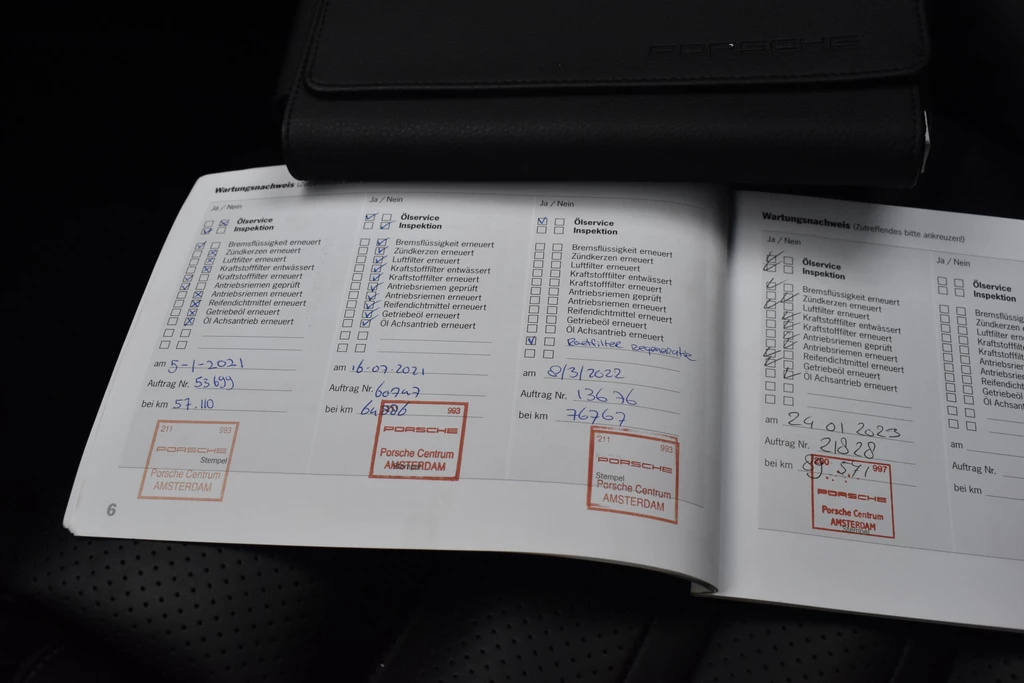 PORSCHE
Wartungsnachweis
Ja / Nein
Ölservice
Inspektion
Bremsflüssigkeit erneuert
Zündkerzen erneuert
Luftfilter erneuert
Kraftstofffilter entwässert
Kraftstofffilter erneuert
Antriebsriemen geprüft
Antriebsriemen erneuert
Reifendichtmittel erneuert
Getriebeöl erneuert
Öl Achsantrieb erneuert
am 5-1-2021
Auftrag Nr. 53699
bei km 57.110
211 993
PORSCHE
Stempel
Porsche Centrum
AMSTERDAM
6
Ja / Nein
Ölservice
Inspektion
Bremsflüssigkeit erneuert
Zündkerzen erneuert
Luftfilter erneuert
Kraftstofffilter entwässert
Kraftstofffilter erneuert
Antriebsriemen geprüft
Antriebsriemen erneuert
Reifendichtmittel erneuert
Getriebeöl erneuert
Öl Achsantrieb erneuert
am 16-07-2021
Auftrag Nr. 60747
bei km
993
PORSCHE
Porsche Centrum
AMSTERDAM
Ja / Nein
Ölservice
Inspektion
Bremsflüssigkeit erneuert
Zündkerzen erneuert
Luftfilter erneuert
Kraftstofffilter entwässert
Kraftstofffilter erneuert
Antriebsriemen geprüft
Antriebsriemen erneuert
Reifendichtmittel erneuert
Getriebeöl erneuert
Öl Achsantrieb erneuert
am 8/3/2022
Auftrag Nr. 13676
bei km 76767
211 993
PORSCHE
Stempel
Porsche Centrum
AMSTERDAM
Wartungsnachweis (Zutreffendes bitte ankreuzen!)
Ja / Nein
Ölservice
Inspektion
Bremsflüssigkeit erneuert
Zündkerzen erneuert
Luftfilter erneuert
Kraftstofffilter entwässert
Kraftstofffilter erneuert
Antriebsriemen geprüft
Antriebsriemen erneuert
Reifendichtmittel erneuert
Getriebeöl erneuert
Öl Achsantrieb erneuert
am 24 01 2023
Auftrag Nr. 21828
bei km
997
PORSCHE
Porsche Centrum
AMSTERDAM
Stempel
Ja / Nein
Ölservice
Inspektion
am
Auftrag Nr.
bei km